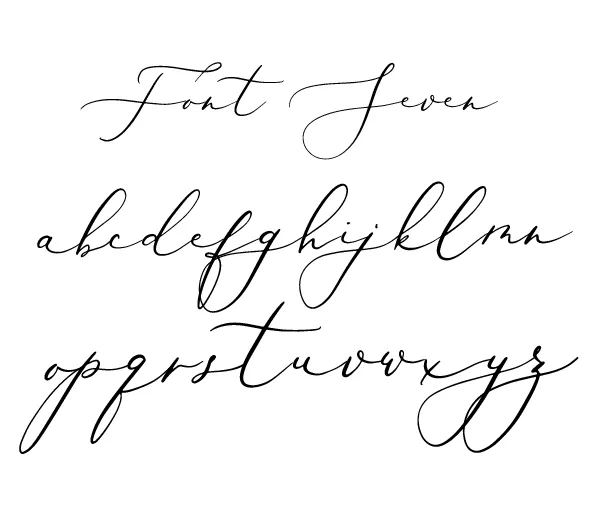 Font Seven
abcdefghijklmn
opqrstuvwxyz